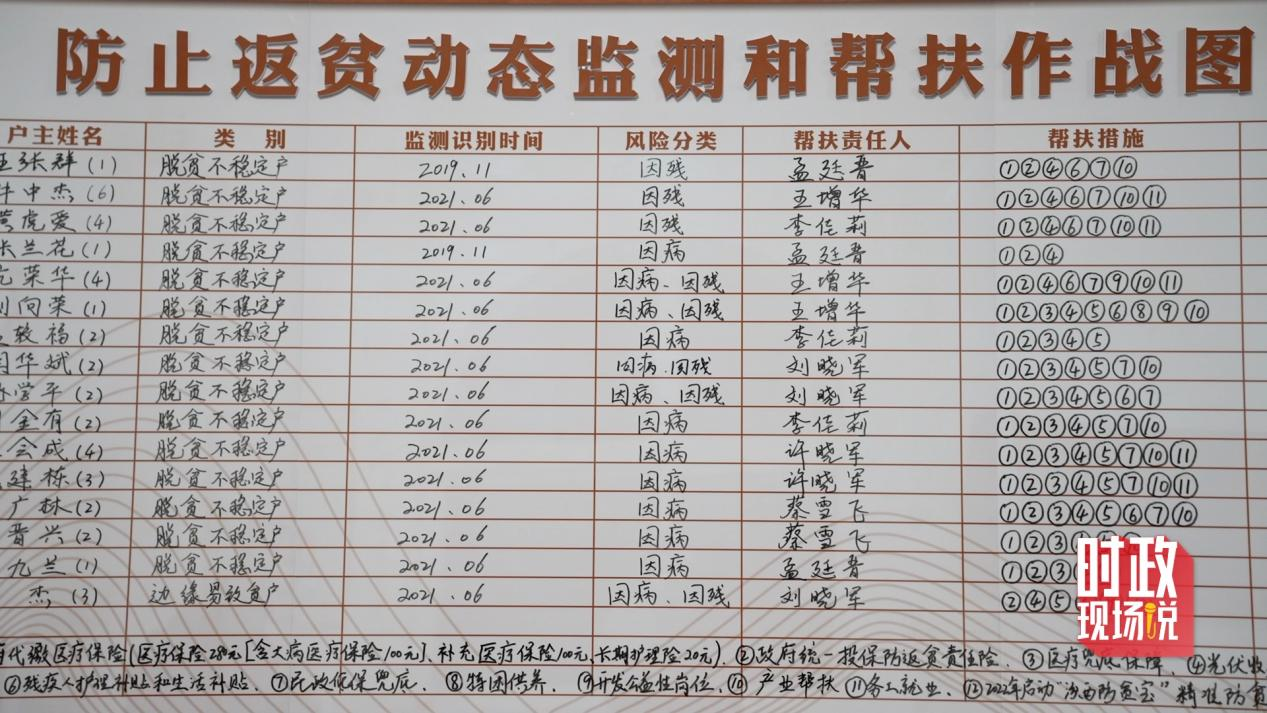 防止返贫动态监测和帮扶作战图
户主姓名 类 别 监测识别时间 风险分类 帮扶责任人 帮扶措施
张群(1) 脱贫不稳定户 2019.11 因残 孟廷晋 ①②④⑥⑦⑩
中杰(6) 脱贫不稳定户 2021.06 因残 王增华 ①②④⑥⑦⑩⑪
虎爱(4) 脱贫不稳定户 2021.06 因残 李佳莉 ①②④⑥⑦⑩⑪
兰花(1) 脱贫不稳定户 2019.11 因病 孟廷晋 ①②④
荣华(4) 脱贫不稳定户 2021.06 因病、因残 王增华 ①②④⑥⑦⑨⑩⑪
向荣(1) 脱贫不稳定户 2021.06 因病、因残 王增华 ①②③④⑤⑥⑧⑨⑩
福(2) 脱贫不稳定户 2021.06 因病 李佳莉 ①②③④⑤
华斌(2) 脱贫不稳定户 2021.06 因病.因残 刘晓军 ①②③④⑤⑦⑩
学平(2) 脱贫不稳定户 2021.06 因病、因残 刘晓军 ①②③④⑤⑥⑦
金有(2) 脱贫不稳定户 2021.06 因病 李佳莉 ①②③④⑤⑦⑩
会成(4) 脱贫不稳定户 2021.06 因病 许晓军 ①②③④⑤⑦⑩⑪
建栋(3) 脱贫不稳定户 2021.06 因病 许晓军 ①②③④⑤⑦⑩⑪
广林(2) 脱贫不稳定户 2021.06 因病 蔡雪飞 ①②③④⑤⑥⑦⑩
晋兴(2) 脱贫不稳定户 2021.06 因病 蔡雪飞 ①②③
九兰(1) 脱贫不稳定户 2021.06 因病 孟廷晋 ①②③
杰(3) 边缘易致贫户 2021.06 因病、因残 刘晓军 ②④⑤
代缴医疗保险(医疗保险280元[含大病医疗保险100元]、补充医疗保险100元、长期护理险20元).②政府统一投保防返贫责任险.③医疗兜底保障.④光伏收
⑥残疾人护理补贴和生活补贴.⑦民政低保兜底.⑧特困供养.⑨开发公益性岗位.⑩产业帮扶⑪务工就业.⑫2022年启动“汾西防贫宝”精准防贫
时政
现场说